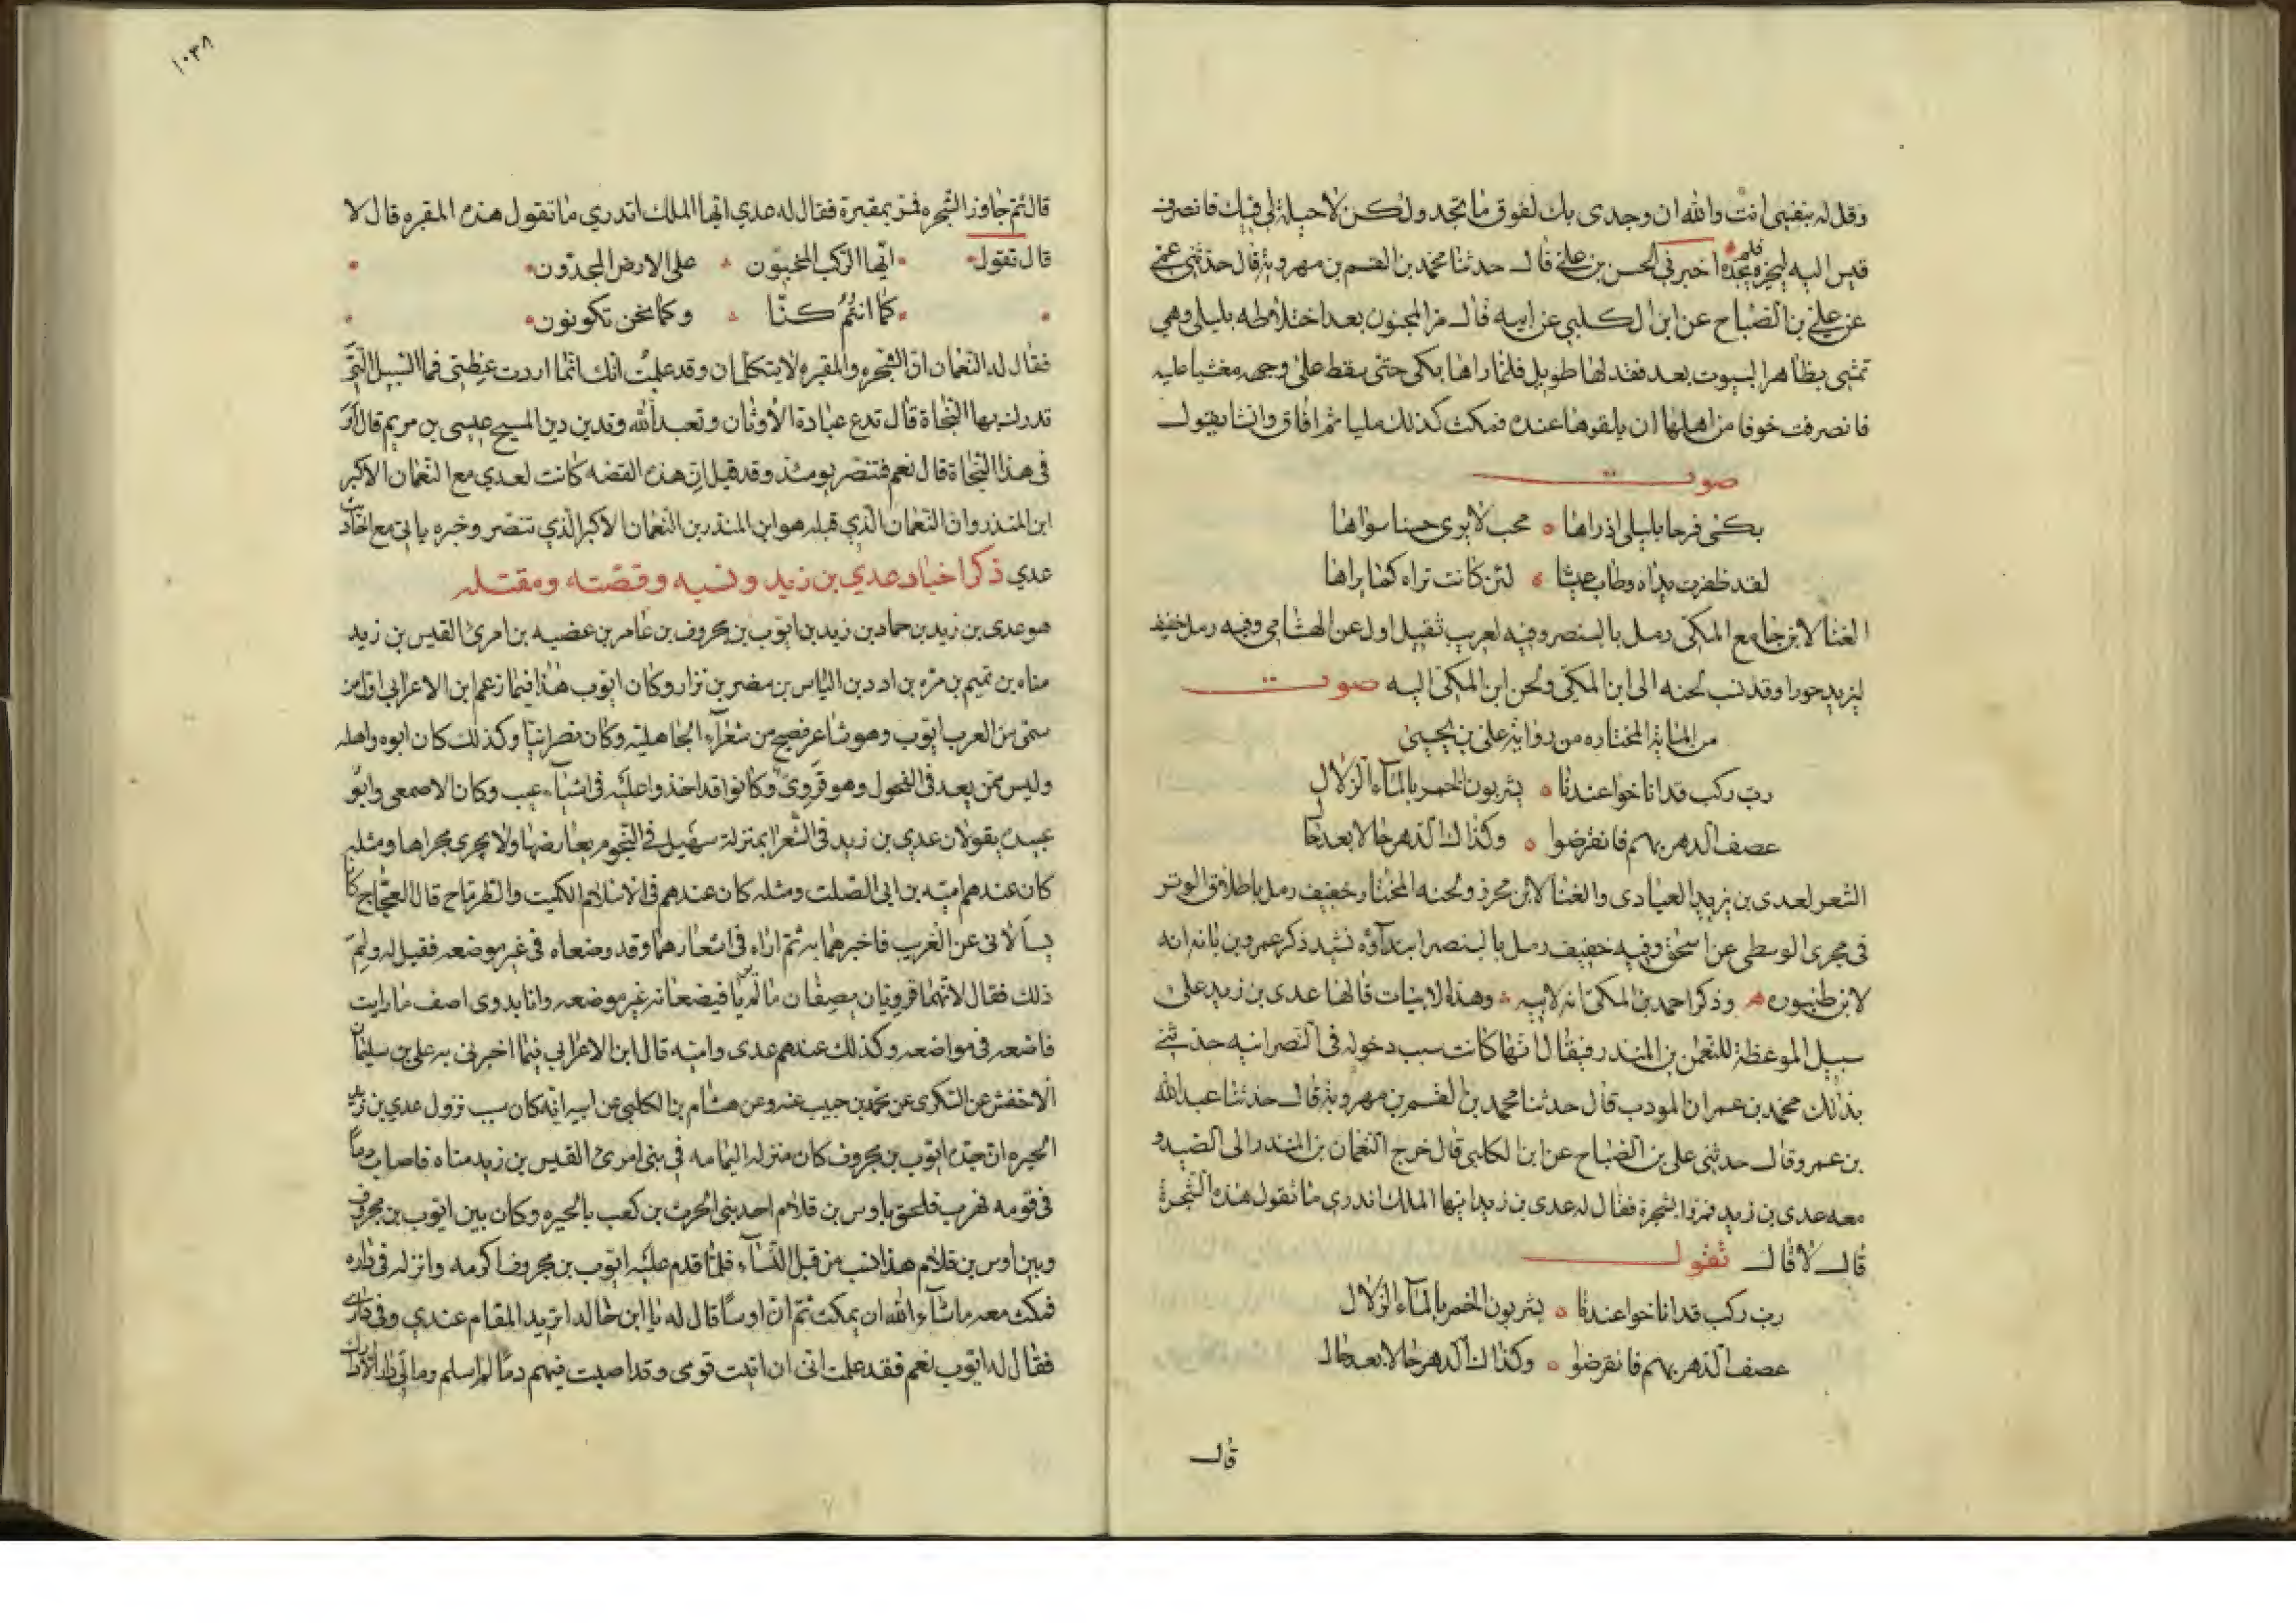 وقل له بنفسي انت والله ان وجدي بك لفوق ما تجد ولكن لا حيلة لي فيك فانصرف
قيس اليه ليخبره فلم يجده اخبرني الحسن بن علي قال حدثنا محمد بن القسم بن مهرويه قال حدثني
عن علي بن الصباح عن ابن الكلبي عن ابيه قال مر المجنون بعد اختلاطه بليلى وهي
تمشي بظاهر البيوت بعد فقد لها طويل فلما راها بكى حتى سقط على وجهه مغشيا عليه
فانصرفت خوفا من اهلها ان يلقوها عنده فمكث كذلك مليا ثم افاق وانشا يقول
صوت
بكى فرحا بليلى اذ راها ٥ محب لا يرى حسنا سواها
لقد ظفرت يداه وطاب عيشا ٥ لئن كانت تراه كما يراها
الغنا لابن جامع المكي رمل بالبنصر وفيه لعريب ثقيل اول عن الهشامي وفيه رمل خفيف
ليزيد حورا وقد نسب لحنه الى ابن المكي ولحن ابن المكي اليه صوت
من المائة المختاره من رواية علي بن يحيى
رب ركب قد اناخوا عندنا ٥ يشربون الخمر بالماء الزلال
عصف الدهر بهم فانقرضوا ٥ وكذاك الدهر حالا بعد حال
الشعر لعدي بن زيد العبادي والغنا لابن محرز ولحنه المختار خفيف رمل باطلاق الوتر
في مجرى الوسطى عن اسحق وفيه خفيف رمل بالبنصر ابتداؤه نشيد ذكر عمرو بن بانه انه
لابن طنبوره وذكر احمد بن المكي انه لابيه وهذه الابيات قالها عدي بن زيد على
سبيل الموعظة للنعمن بن المنذر فيقال انها كانت سبب دخوله في النصرانيه حدثني
بذلك محمد بن عمران المودب قال حدثنا محمد بن القسم بن مهرويه قال حدثنا عبد الله
بن عمرو قال حدثني علي بن الصباح عن ابن الكلبي قال خرج النعمان بن المنذر الى الصيد و
معه عدي بن زيد فمروا بشجرة فقال له عدي بن زيد ايها الملك اتدري ما تقول هذه الشجرة
قال لا قال تقول
رب ركب قد اناخوا عندنا ٥ يشربون الخمر بالماء الزلال
عصف الدهر بهم فانقرضوا ٥ وكذاك الدهر حالا بعد حال
قال
١٠٣٨
قال ثم جاوز الشجره فمر بمقبرة فقال له عدي ايها الملك اتدري ما تقول هذه المقبره قال لا
قال تقول ايها الركب المخبون على الارض المجدون
كما انتم كنا وكما نحن تكونون
فقال له النعمان ان الشجره والمقبره لا يتكلمان وقد علمت انك انما اردت عظتي فما السبيل التي
تدرك بها النجاة قال تدع عبادة الاوثان وتعبد الله وتدين دين المسيح عيسى بن مريم قال او
في هذا النجاة قال نعم فتنصر يومئذ وقد قيل ان هذه القصه كانت لعدي مع النعمان الاكبر
ابن المنذر وان النعمان الذي قتله هو ابن المنذر بن النعمان الاكبر الذي تنصر وخبره ياتي مع احاديث
عدي ذكر اخبار عدي بن زيد ونسبه وقصته ومقتله
هو عدي بن زيد بن حماد بن زيد بن ايوب بن مجروف بن عامر بن عصيه بن امرئ القيس بن زيد
مناه بن تميم بن مره بن ادد بن الياس بن مضر بن نزار وكان ايوب هذا فيما زعم ابن الاعرابي اول من
سمي من العرب ايوب وهو شاعر فصيح من شعرآء الجاهلية وكان نصرانيا وكذلك كان ابوه واهله
وليس ممن يعد في الفحول وهو قروي وكانوا قد اخذوا عليه في اشيآء عيب وكان الاصمعي وابو
عبيده يقولان عدي بن زيد في الشعرا بمنزلة سهيل في النجوم يعارضها ولا يجري مجراها ومثله
كان عندهم امية بن ابي الصلت ومثله كان عندهم في الاسلام الكميت والطرماح قال العجاج كانا
يسألاني عن الغريب فاخبرهما به ثم اراه في اشعارهما وقد وضعاه في غير موضعه فقيل له ولم
ذلك فقال لانهما قرويان يصفان ما لم يريا فيضعانه غير موضعه وانا بدوي اصف ما رايت
فاضعه في مواضعه وكذلك عندهم عدي وامية قال ابن الاعرابي فيما اخبرني به علي بن سليمان
الاخفش عن السكري عن محمد بن حبيب عنه وعن هشام بن الكلبي عن ابيه انه كان سبب نزول عدي بن زيد
الحيره ان جده ايوب بن مجروف كان منزله اليمامه في بني امرئ القيس بن زيد مناه فاصاب دما
في قومه فهرب فلحق باوس بن قلام احد بني الحرث بن كعب بالحيره وكان بين ايوب بن مجروف
وبين اوس بن قلام هذا نسب من قبل النسآء فلما قدم عليه ايوب بن مجروف اكرمه وانزله في داره
فمكث معه ما شآء الله ان يمكث ثم ان اوسا قال له يا ابن خال اتريد المقام عندي وفي داري
فقال له ايوب نعم فقد علمت اني ان اتيت قومي وقد اصبت فيهم دما لم اسلم وما لي دار الا دارك